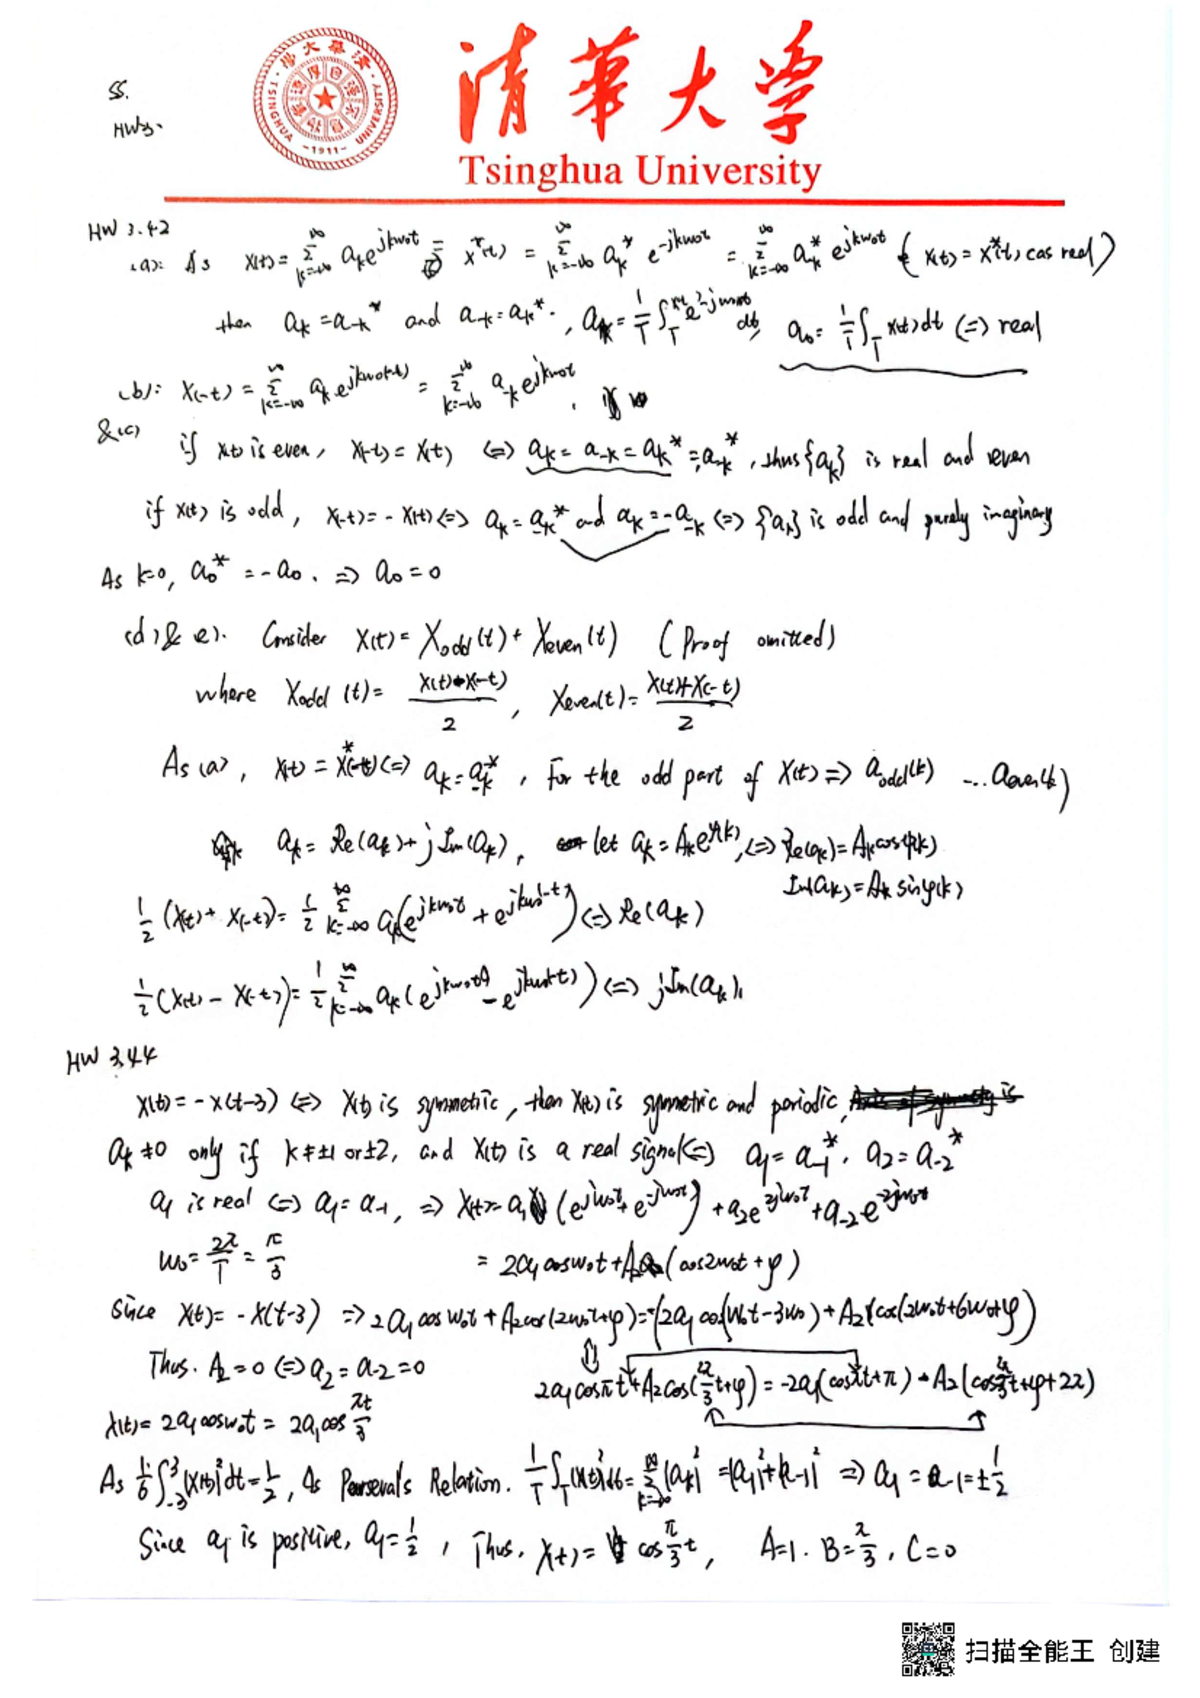 清华大学
Tsinghua University
TSINGHUA UNIVERSITY
-1911-
SS.
HW3.
HW 3.42
(a): As x(t) = Σ_{k=-∞}^{∞} a_k e^{jkw₀t} = x*(t) = Σ_{k=-∞}^{∞} a_k* e^{-jkw₀t} = Σ_{k=-∞}^{∞} a_{-k}* e^{jkw₀t} (x(t) = x*(t), cas real)
then a_k = a_{-k}* and a_{-k} = a_k*. , a_k = 1/T ∫_T x(t) e^{-jkw₀t} dt, a₀ = 1/T ∫_T x(t)dt (=> real
(b): x(-t) = Σ_{k=-∞}^{∞} a_k e^{jkw₀(-t)} = Σ_{k=-∞}^{∞} a_{-k} e^{jkw₀t} .
&(c)
if x(t) is even, x(-t) = x(t) <=> a_k = a_{-k} = a_k* = a_{-k}*, thus {a_k} is real and even
if x(t) is odd, x(-t) = - x(t) <=> a_k = a_{-k}* and a_k = -a_{-k} <=> {a_k} is odd and purely imaginary
As k=0, a₀* = -a₀. => a₀ = 0
(d) & e). Consider x(t) = X_odd(t) + X_even(t) (Proof omitted)
where X_odd (t) = x(t)-x(-t) / 2 , X_even(t) = x(t)+x(-t) / 2
As (a), x(t) = x*(t) <=> a_k = a_{-k}* , For the odd part of x(t) => a_odd(k) ... a_even(k)
a_k = Re(a_k) + j Im(a_k), let a_k = A_k e^{jφ(k)}, <=> Re(a_k) = A_k cosφ(k)
Im(a_k) = A_k sinφ(k)
1/2 (x(t) + x(-t)) = 1/2 Σ_{k=-∞}^{∞} a_k (e^{jkw₀t} + e^{jkw₀(-t)}) <=> Re(a_k)
1/2 (x(t) - x(-t)) = 1/2 Σ_{k=-∞}^{∞} a_k (e^{jkw₀t} - e^{jkw₀(-t)}) <=> jIm(a_k),
HW 3.44
x(t) = - x(t-3) <=> x(t) is symmetric, then x(t) is symmetric and periodic,
a_k ≠ 0 only if k ≠ ±1 or ±2, and x(t) is a real signal <=> a₁ = a_{-1}*. a₂ = a_{-2}*
a₁ is real <=> a₁ = a_{-1}, => x(t) = a₁ (e^{jw₀t} + e^{-jw₀t}) + a₂e^{2jw₀t} + a_{-2}e^{-2jw₀t}
w₀ = 2π/T = π/3 = 2a₁cosw₀t + A₂(cos2w₀t + φ)
Since x(t) = - x(t-3) => 2a₁cosw₀t + A₂cos(2w₀t+φ) = -(2a₁cos(w₀t-3w₀) + A₂(cos(2w₀t+6w₀+φ)
Thus. A₂ = 0 <=> a₂ = a_{-2} = 0 2a₁cosπt + A₂cos(2π/3 t+φ) = -2a₁(cosπt+π) - A₂(cos 2π/3 t+φ+2π)
x(t) = 2a₁cosw₀t = 2a₁cos πt/3
As 1/6 ∫_{-3}^{3} |x(t)|²dt = 1/2, As Parseval's Relation. 1/T ∫_T |x(t)|²dt = Σ_{k=-∞}^{∞} |a_k|² = |a₁|² + |a_{-1}|² => a₁ = a_{-1} = ±1/2
Since a₁ is positive, a₁ = 1/2, Thus, x(t) = cos π/3 t, A=1. B = π/3, C=0
扫描全能王 创建